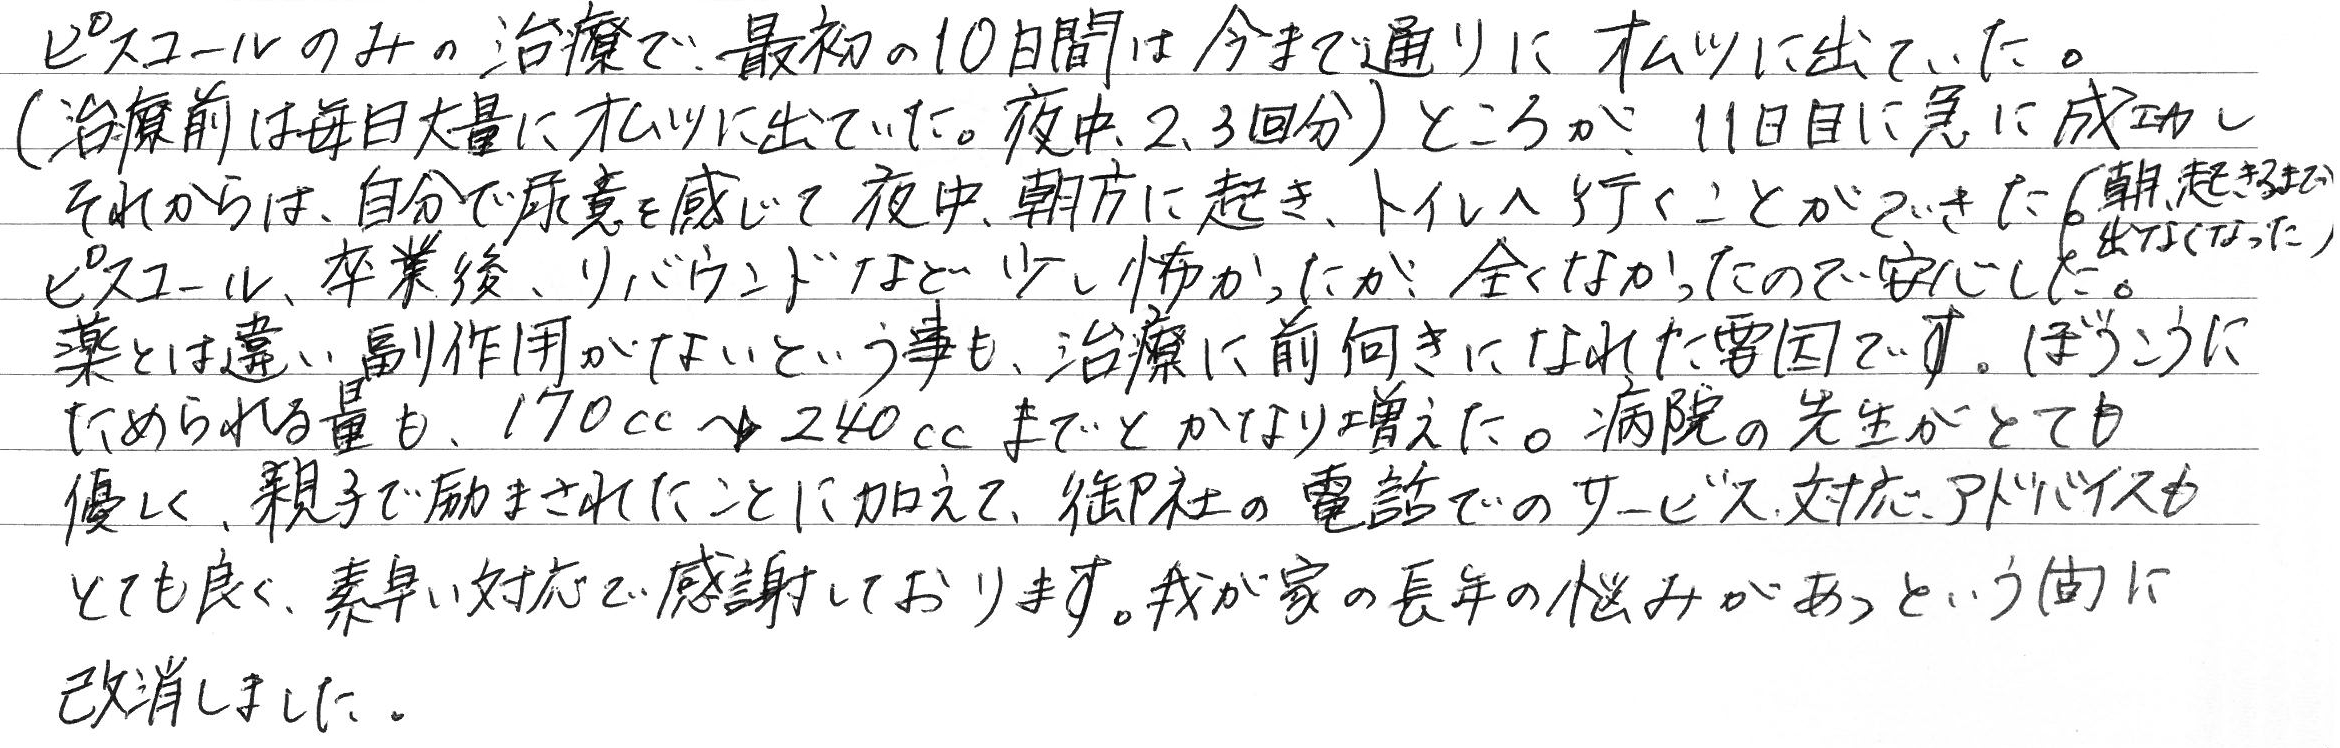 ピスコールのみの治療で、最初の10日間は今まで通りにオムツに出ていた。
(治療前は毎日大量にオムツに出ていた。夜中、2、3回分)ところが、11日目に急に成功し
それからは、自分で尿意を感じて夜中、朝方に起き、トイレへ行くことができた。(朝、起きるまで
出なくなった)
ピスコール、卒業後、リバウンドなど少し怖かったが、全くなかったので安心した。
薬とは違い副作用がないという事も、治療に前向きになれた要因です。ぼうこうに
ためられる量も、170cc→240ccまでとかなり増えた。病院の先生がとても
優しく、親子で励まされたことに加えて、御社の電話でのサービス、対応、アドバイスも
とても良く、素早い対応で感謝しております。我が家の長年の悩みがあっという間に
改消しました。